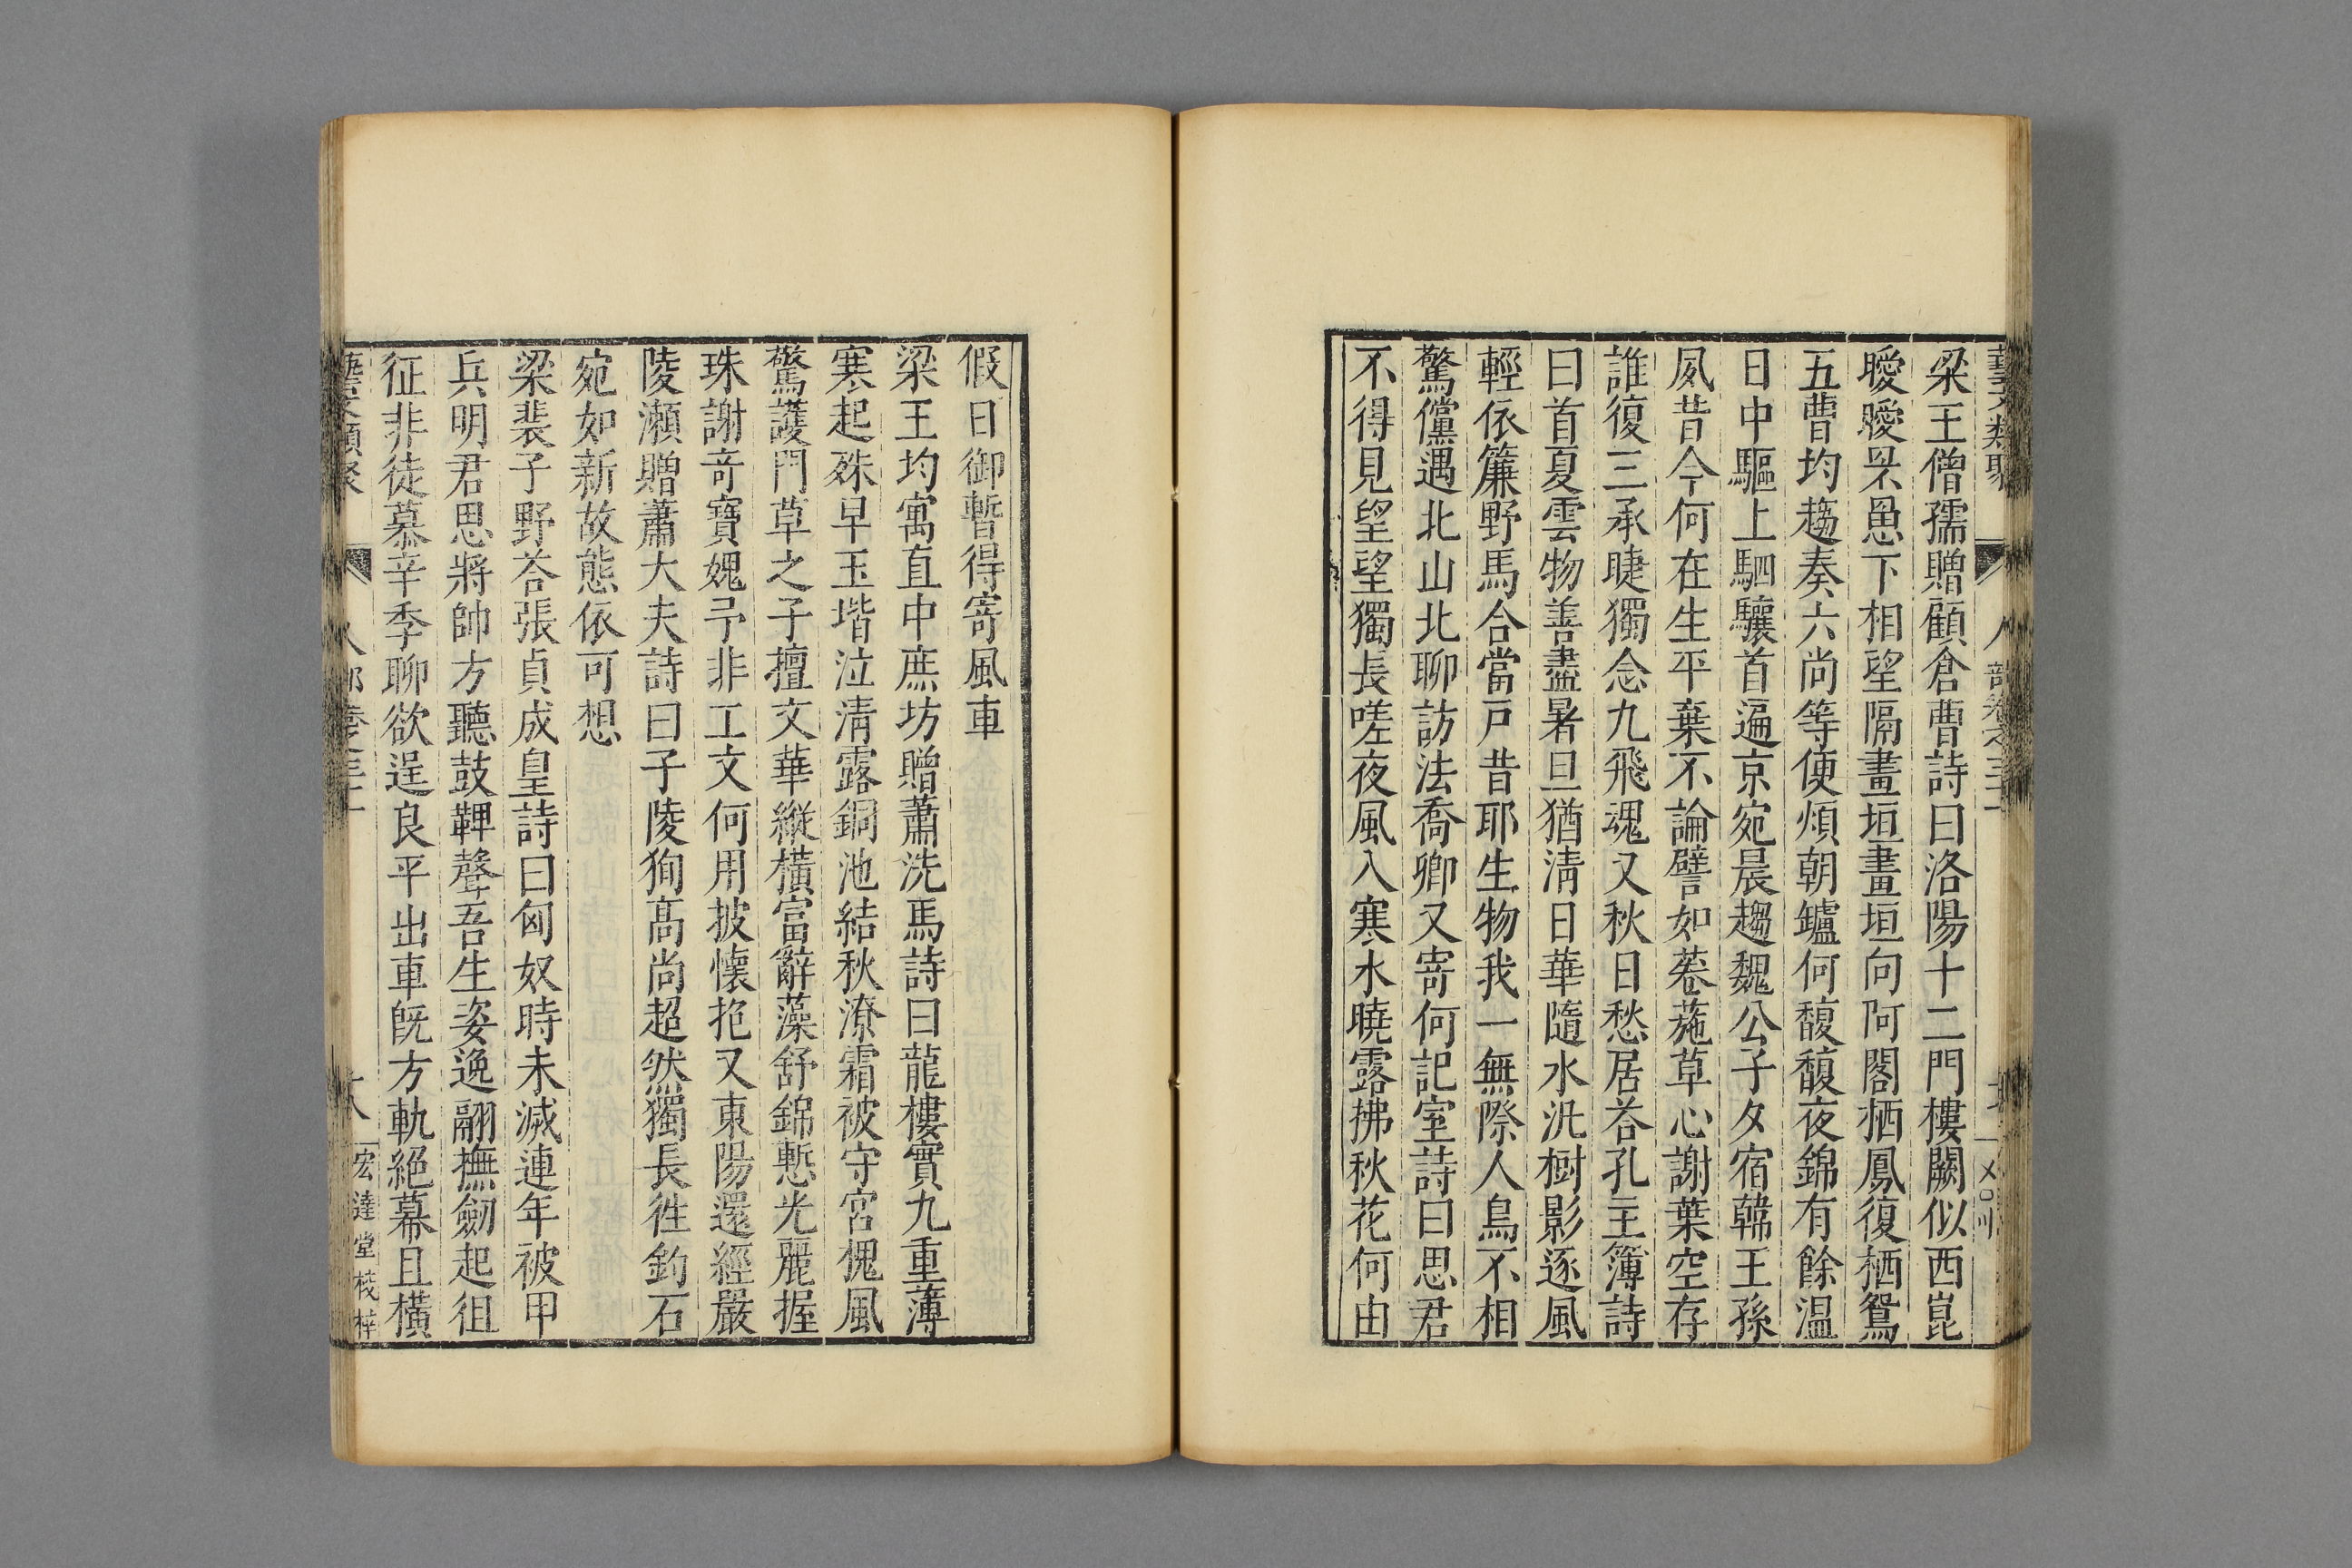 梁王僧孺贈顧倉曹詩曰洛陽十二門樓闕似西崑
曖曖罘罳下相望隔畫垣畫垣向阿閣栖鳳復栖鴛
五曹均趨奏六尚等便煩朝鑪何馥馥夜錦有餘溫
日中驅上駟驤首遍京宛晨趨魏公子夕宿韓王孫
夙昔今何在生平棄不論譬如菤葹草心謝葉空存
誰復三承睫獨念九飛魂又秋日愁居荅孔主簿詩
曰首夏雲物善盡暑旦猶清日華隨水汎樹影逐風
輕依簾野馬合當戶昔耶生物我一無際人鳥不相
驚儻遇北山北聊訪法喬卿又寄何記室詩曰思君
不得見望望獨長嗟夜風入寒水曉露拂秋花何由
假日御暫得寄風車
梁王均寓直中庶坊贈蕭洗馬詩曰龍樓實九重薄
寒起殊早玉堦泣清露銅池結秋潦霜被守宮槐風
驚護門草之子擅文華縱橫富辭藻舒錦慙光麗握
珠謝奇寶媿予非工文何用披懷抱又東陽還經嚴
陵瀨贈蕭大夫詩曰子陵狥高尚超然獨長徃釣石
宛如新故態依可想
梁裴子野荅張貞成皇詩曰匈奴時未滅連年被甲
兵明君思將帥方聽鼓鞞聲吾生姿逸翮撫劒起徂
征非徒慕辛季聊欲逞良平出車旣方軌絕幕且橫
宏達堂校梓